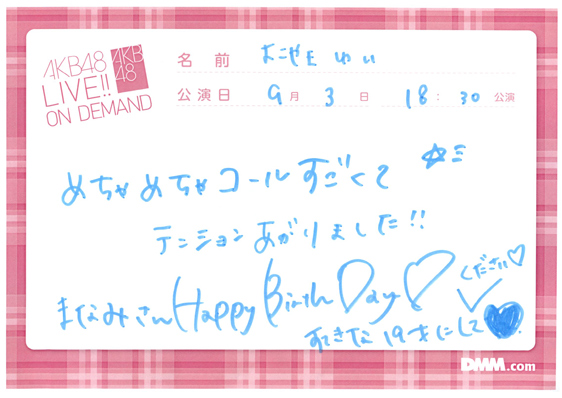 AKB48
LIVE!!
ON DEMAND
AKB
48
名前 よこやま ゆい
公演日 9月 3日 18:30 公演
めちゃめちゃコールすごくて ☆ミ
テンションあがりました!!
まなみさん Happy Birth Day♡
すてきな19才にして
ください♡
DMM.com